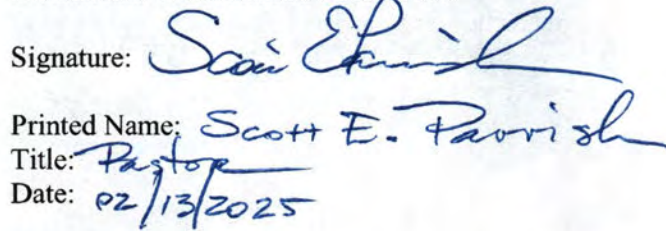 Signature: Scott E Parrish
Printed Name: Scott E. Parrish
Title: Pastor
Date: 02/13/2025